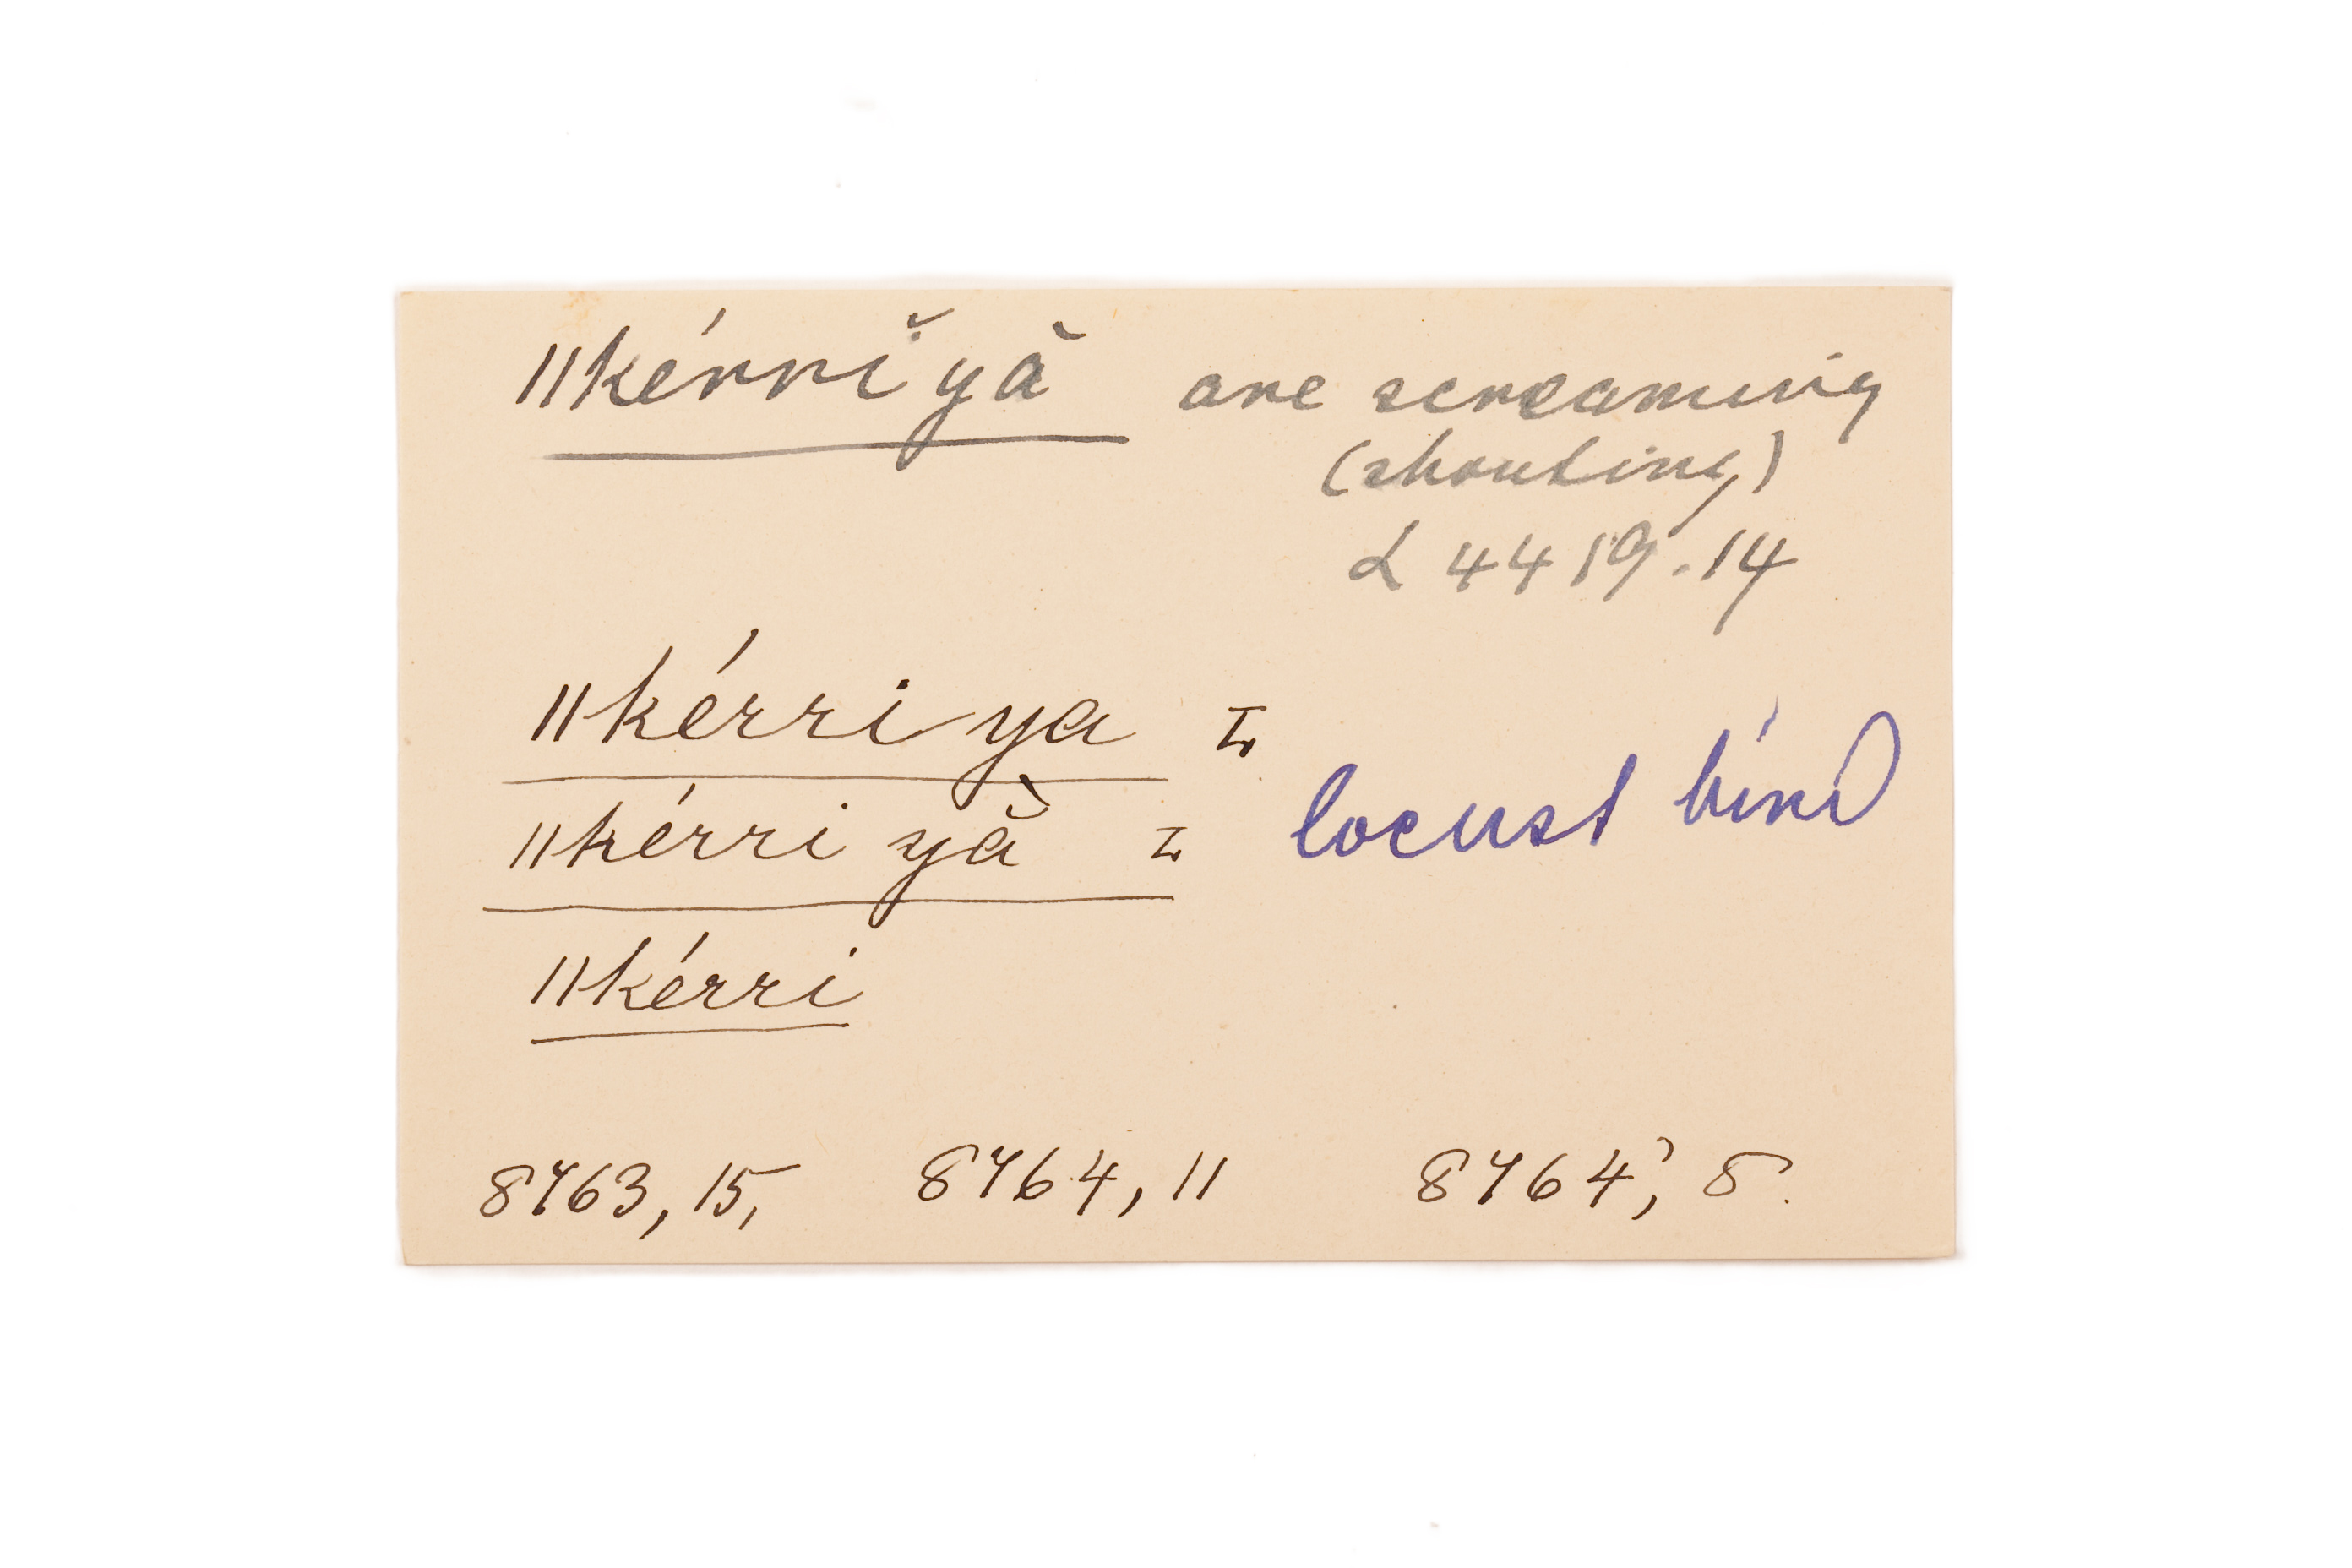 ǁkérrĭ yȁ are screaming
(shouting)
L 4419.14
ǁkérri ya =
ǁkérri yȁ = locust bird
ǁkérri
8763, 15, 8764, 11 8764', 8.